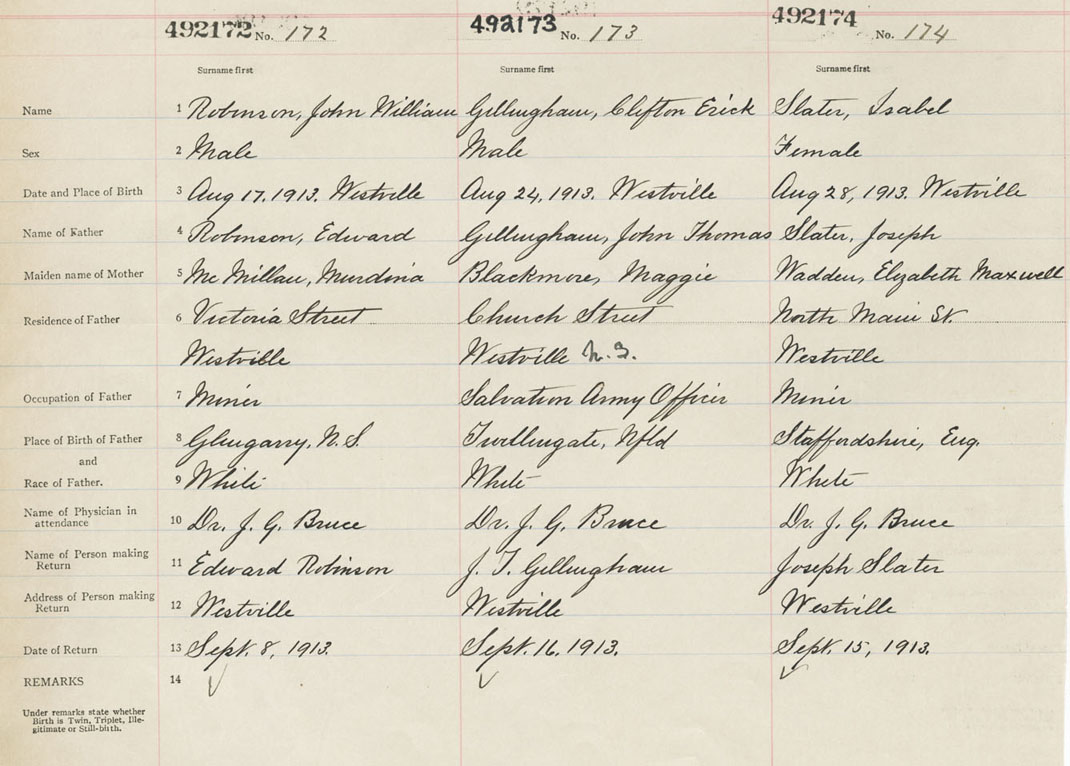 492172 No. 172 492173 No. 173 492174 No. 174
Surname first Surname first Surname first
Name 1 Robinson, John William Gillingham, Clifton Erick Slater, Isabel
Sex 2 Male Male Female
Date and Place of Birth 3 Aug 17, 1913. Westville Aug 24, 1913. Westville Aug 28, 1913. Westville
Name of Father 4 Robinson, Edward Gillingham, John Thomas Slater, Joseph
Maiden name of Mother 5 Mc Millan, Murdina Blackmore, Maggie Wadden, Elizabeth Maxwell
Residence of Father 6 Victoria Street Church Street North Main St.
Westville Westville N.S. Westville
Occupation of Father 7 Miner Salvation Army Officer Miner
Place of Birth of Father 8 Glengarry, N.S. Twillingate, Nfld Staffordshire, Eng.
and
Race of Father. 9 White White White
Name of Physician in
attendance 10 Dr. J. G. Bruce Dr. J. G. Bruce Dr. J. G. Bruce
Name of Person making
Return 11 Edward Robinson J. T. Gillingham Joseph Slater
Address of Person making
Return 12 Westville Westville Westville
Date of Return 13 Sept. 8, 1913. Sept. 16, 1913. Sept. 15, 1913.
REMARKS 14
Under remarks state whether
Birth is Twin, Triplet, Ille-
gitimate or Still-birth.